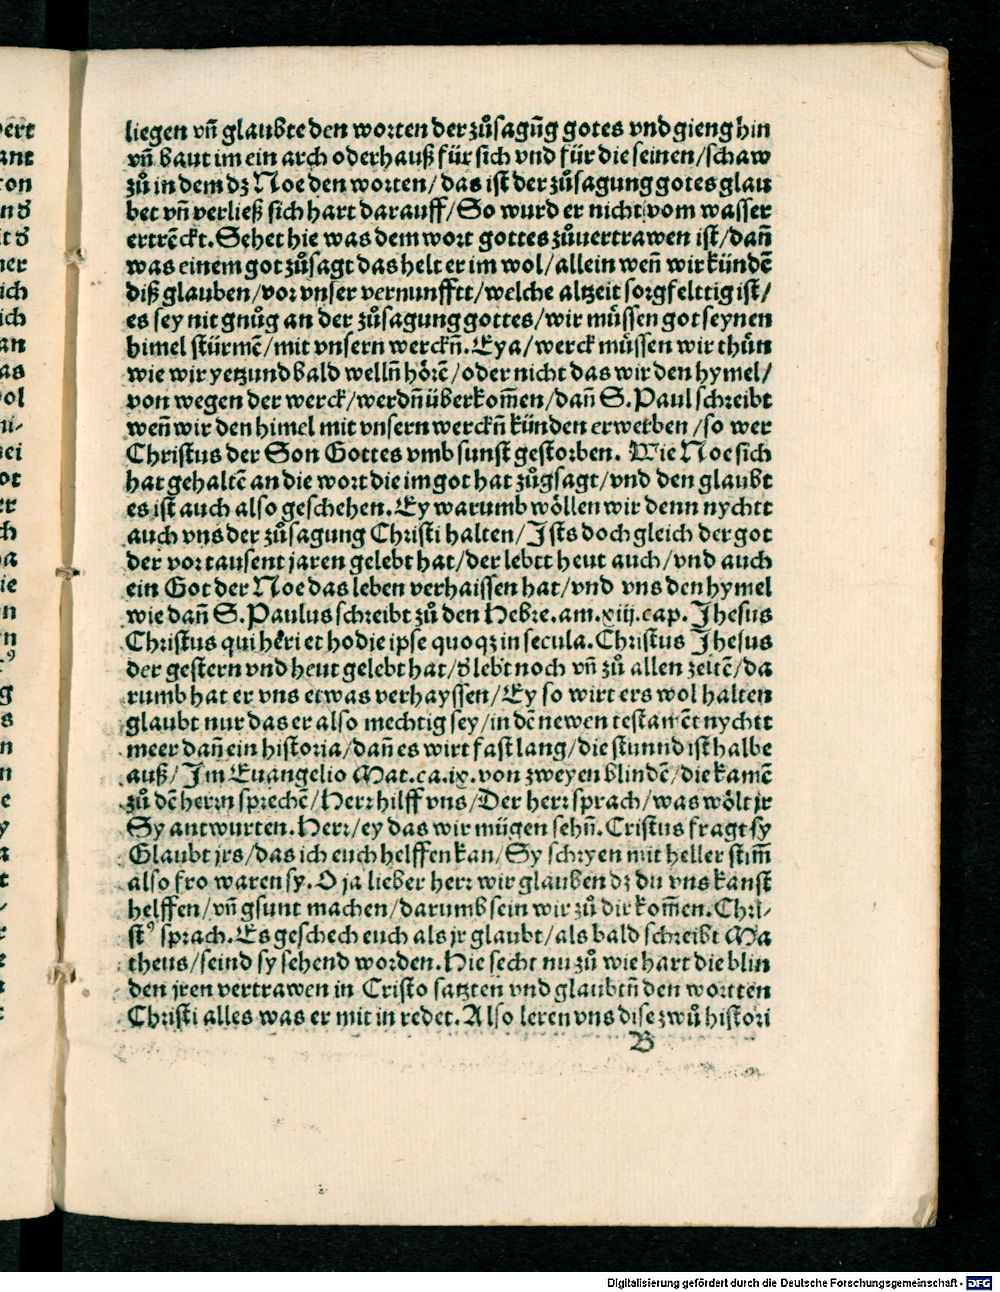 liegen vn̄ glaubte den worten der zůsagūg gotes vnd gieng hin
vn̄ baut im ein arch oder hauß für sich vnd für die seinen/schaw
zů in dem dz Noe den worten/das ist der zůsagung gotes glau
bet vn̄ verließ sich hart darauff/So wurd er nicht vom wasser
ertrēckt. Sehet hie was dem wort gottes zůuertrawen ist/dan̄
was einem got zůsagt das helt er im wol/allein wen̄ wir kündē
diß glauben/vor vnser vernunfftt/welche altzeit sorgfelttig ist/
es sey nit gnůg an der zůsagung gottes/wir müssen got seynen
himel stürmē/mit vnsern werckn̄. Eya/werck müssen wir thůn
wie wir yetzund bald welln̄ hörē/oder nicht das wir den hymel/
von wegen der werck/werdn̄ überkom̄en/dan̄ S. Paul schreibt
wen̄ wir den himel mit vnsern werckn̄ künden erwerben/so wer
Christus der Son Gottes vmb sunst gestorben. Wie Noe sich
hat gehaltē an die wort die im got hat zůgsagt/vnd den glaubt
es ist auch also geschehen. Ey warumb wöllen wir denn nychtt
auch vns der zůsagung Christi halten/Ists doch gleich der got
der vor tausent jaren gelebt hat/der lebtt heut auch/vnd auch
ein Got der Noe das leben verhaissen hat/vnd vns den hymel
wie dan̄ S. Paulus schreibt zů den Hebre. am. xiij. cap. Jhesus
Christus qui hēri et hodie ipse quoqz in secula. Christus Jhesus
der gestern vnd heut gelebt hat/d̕ lebt noch vn̄ zů allen zeitē/da
rumb hat er vns etwas verhayssen/Ey so wirt ers wol halten
glaubt nur das er also mechtig sey/in dē newen testamēt nychtt
meer dan̄ ein historia/dan̄ es wirt fast lang/die stunnd ist halbe
auß/Im Euangelio Mat. ca. ix. von zweyen blindē/die kamē
zů dē herrn sprechē/Herr hilff vns/Der herr sprach/was wölt jr
Sy antwurten. Herr/ey das wir mügen sehn̄. Cristus fragt sy
Glaubt jrs/das ich euch helffen kan/Sy schryen mit heller stim̄
also fro waren sy. O ja lieber herr wir glauben dz du vns kanst
helffen/vn̄ gsunt machen/darumb sein wir zů dir kom̄en. Chri⸗
stꝰ sprach. Es geschech euch als jr glaubt/als bald schreibt Ma
theus/seind sy sehend worden. Hie secht nu zů wie hart die blin
den jren vertrawen in Cristo satzten vnd glaubtn̄ den wortten
Christi alles was er mit in redet. Also leren vns dise zwů histori
B
Digitalisierung gefördert durch die Deutsche Forschungsgemeinschaft - DFG